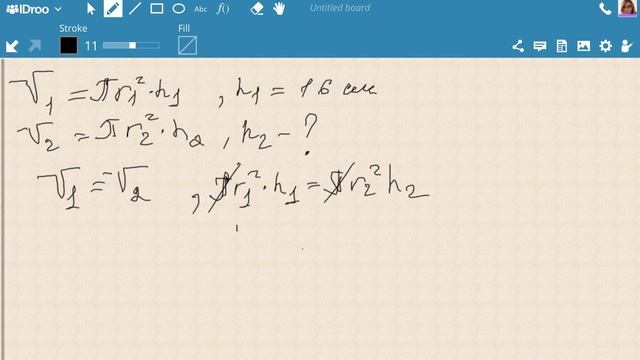 IDroo
Abc
f()
Untitled board
Stroke
Fill
11
V₁ = πr₁² · h₁ , h₁ = 16 см
V₂ = πr₂² · h₂ , h₂ - ?
V₁ = V₂ , πr₁² · h₁ = πr₂² h₂